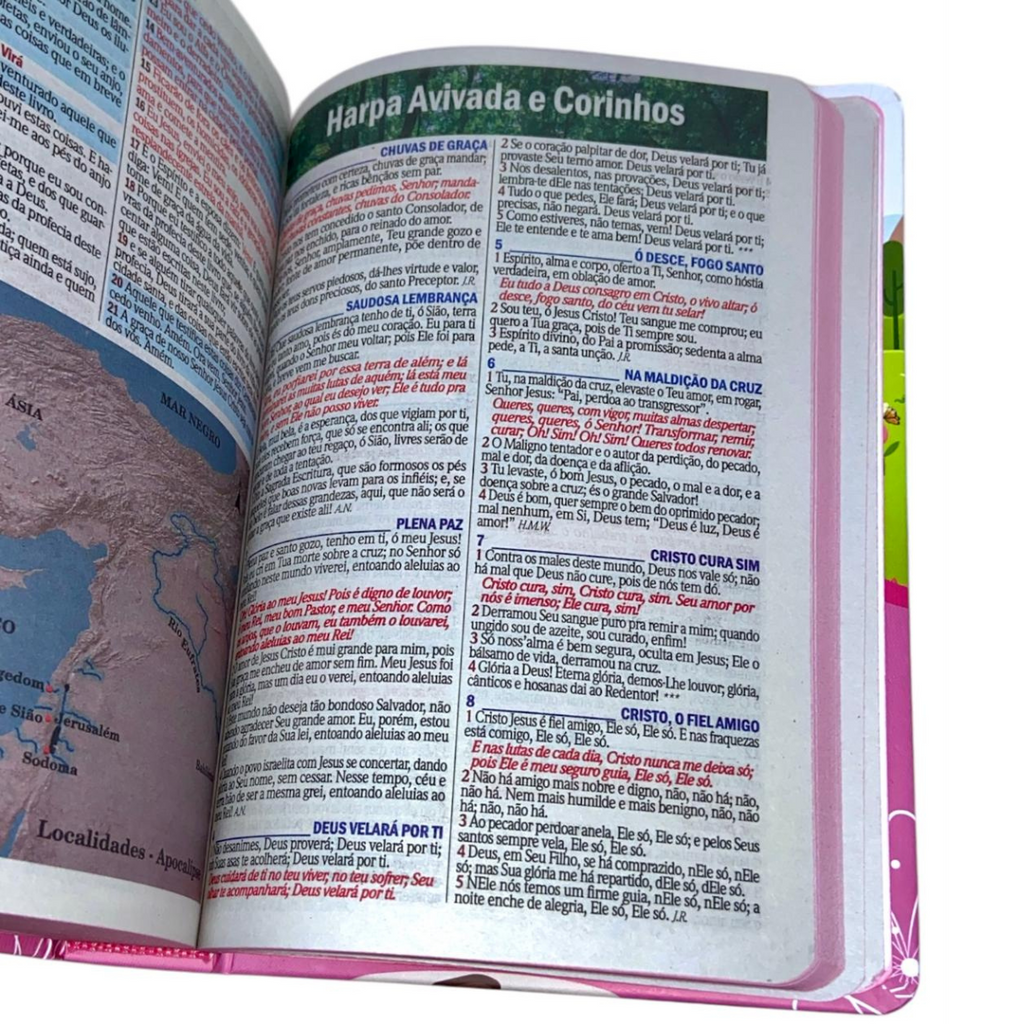 nome-
Deus os ilu-
etas, enviou o seu anjo,
as coisas que em breve
Virá
venturado aquele que
deste livro.
ouvi estas coisas. E ha-
ei-me aos pés do anjo
porque eu sou con-
etas, e dos que guar-
a a Deus.
as da profecia deste
da; quem está sujo,
tiça ainda e quem
15 Ficarão de fora os
16
17 E o Espírito e
diga: Vem! E
tome de graça da água da
18
19 e se alguém tirar
profecia, Deus
cidade santa, e das coisas
20 Aquele que testifica estas
cedo venho. Amém. Ora vem, Senhor
21 A graça de nosso Senhor Jesus Cristo
dos vós. Amém.
ÁSIA
MAR NEGRO
Rio
gedom
e Sião
Jerusalém
Sodoma
Localidades - Apocalipse
Harpa Avivada e Corinhos
CHUVAS DE GRAÇA
com certeza, chuvas de graça mandar;
fortaleza, e ricas bênçãos sem par.
de graça, chuvas pedimos, Senhor; manda-
constantes, chuvas do Consolador.
tem concedido o santo Consolador, de
enchido, para o reinado do amor.
Senhor, amplamente, Teu grande gozo e
de amor permanente, põe dentro de
teus servos piedosos, dá-lhes virtude e valor,
teus dons preciosos, do santo Preceptor. J.R.
SAUDOSA LEMBRANÇA
saudosa lembrança tenho de ti, ó Sião, terra
tanto amo, pois és do meu coração. Eu para ti
quando o Senhor meu voltar; pois Ele foi para
breve vem me buscar.
por essa terra de além; e lá
as muitas lutas de aquém; lá está meu
Senhor, ao qual eu desejo ver; Ele é tudo pra
e sem Ele não posso viver.
bela, é a esperança, dos que vigiam por ti,
recebem força, que só se encontra ali; os que
chegar ao teu regaço, ó Sião, livres serão de
de toda a tentação.
a Sagrada Escritura, que são formosos os pés
que boas novas levam para os infiéis; e, se
falar dessas grandezas, aqui, que não será o
a graça que existe ali! A.N.
PLENA PAZ
paz e santo gozo, tenho em ti, ó meu Jesus!
cri em Tua morte sobre a cruz; no Senhor só
neste mundo viverei, entoando aleluias ao
Glória ao meu Jesus! Pois é digno de louvor;
meu Rei, meu bom Pastor, e meu Senhor. Como
anjos, que o louvam, eu também o louvarei,
entoando aleluias ao meu Rei!
amor de Jesus Cristo é mui grande para mim, pois
graça me encheu de amor sem fim. Meu Jesus foi
a glória, mas um dia eu o verei, entoando aleluias
meu Rei!
mundo não deseja tão bondoso Salvador, não
agradecer Seu grande amor. Eu, porém, estou
do favor da Sua lei, entoando aleluias ao meu
Quando o povo israelita com Jesus se concertar, dando
ao Seu nome, sem cessar. Nesse tempo, céu e
hão de ser a mesma grei, entoando aleluias ao
meu Rei! A.N.
DEUS VELARÁ POR TI
Não desanimes, Deus proverá; Deus velará por ti;
Suas asas te acolherá; Deus velará por ti.
Deus cuidará de ti no teu viver, no teu sofrer; Seu
te acompanhará; Deus velará por ti.
2 Se o coração palpitar de dor, Deus velará por ti; Tu já
provaste Seu terno amor. Deus velará por ti.
3 Nos desalentos, nas provações, Deus velará por ti;
lembra-te dEle nas tentações; Deus velará por ti.
4 Tudo o que pedes, Ele fará; Deus velará por ti; e o que
precisas, não negará. Deus velará por ti.
5 Como estiveres, não temas, vem! Deus velará por ti;
Ele te entende e te ama bem! Deus velará por ti. ***
5 Ó DESCE, FOGO SANTO
1 Espírito, alma e corpo, oferto a Ti, Senhor, como hóstia
verdadeira, em oblação de amor.
Eu tudo a Deus consagro em Cristo, o vivo altar; ó
desce, fogo santo, do céu vem tu selar!
2 Sou teu, ó Jesus Cristo! Teu sangue me comprou; eu
quero a Tua graça, pois de Ti sempre sou.
3 Espírito divino, do Pai a promissão; sedenta a alma
pede, a Ti, a santa unção. J.R.
6 NA MALDIÇÃO DA CRUZ
1 Tu, na maldição da cruz, elevaste o Teu amor, em rogar,
Senhor Jesus: "Pai, perdoa ao transgressor".
Queres, queres, com vigor, muitas almas despertar;
queres, queres, ó Senhor! Transformar, remir,
curar; Oh! Sim! Oh! Sim! Queres todos renovar.
2 O Maligno tentador e o autor da perdição, do pecado,
mal e dor, da doença e da aflição.
3 Tu levaste, ó bom Jesus, o pecado, o mal e a dor, e a
doença sobre a cruz; és o grande Salvador!
4 Deus é bom, quer sempre o bem do oprimido pecador;
mal nenhum, em Si, Deus tem; "Deus é luz, Deus é
amor!" H.M.W.
7 CRISTO CURA SIM
1 Contra os males deste mundo, Deus nos vale só; não
há mal que Deus não cure, pois de nós tem dó.
Cristo cura, sim, Cristo cura, sim. Seu amor por
nós é imenso; Ele cura, sim!
2 Derramou Seu sangue puro pra remir a mim; quando
ungido sou de azeite, sou curado, enfim!
3 Só noss'alma é bem segura, oculta em Jesus; Ele o
bálsamo de vida, derramou na cruz.
4 Glória a Deus! Eterna glória, demos-Lhe louvor; glória,
cânticos e hosanas dai ao Redentor! ***
8 CRISTO, O FIEL AMIGO
1 Cristo Jesus é fiel amigo, Ele só, Ele só. E nas fraquezas
está comigo, Ele só, Ele só.
E nas lutas de cada dia, Cristo nunca me deixa só;
pois Ele é meu seguro guia, Ele só, Ele só.
2 Não há amigo mais nobre e digno, não, não há; não,
não há. Nem mais humilde e mais benigno, não, não
há; não, não há.
3 Ao pecador perdoar anela, Ele só, Ele só; e pelos Seus
santos sempre vela, Ele só, Ele só.
4 Deus, em Seu Filho, se há comprazido, nEle só, nEle
só; mas Sua glória me há repartido, dEle só, dEle só.
5 NEle nós temos um firme guia, nEle só, nEle só; a
noite enche de alegria, Ele só, Ele só. J.R.